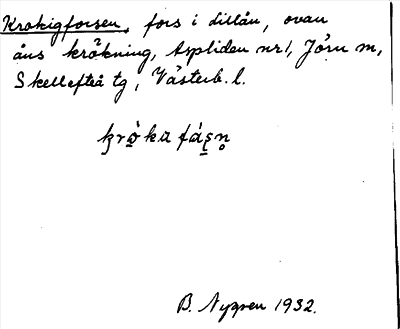 Krokigforsen, fors i Lillån, ovan
åns krökning, Aspliden nr 1, Jörn sn,
Skellefteå tg, Västerb. l.
B. Nygren 1932.